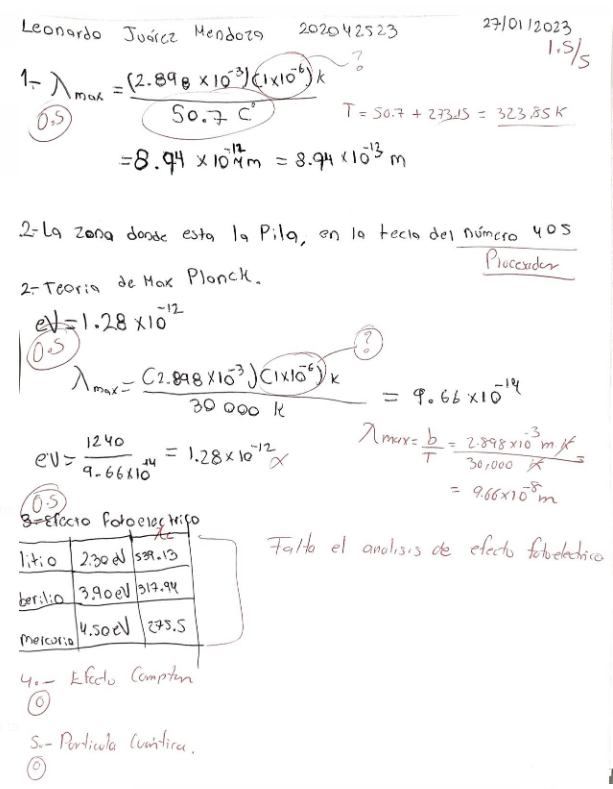 Leonardo Juárez Mendoza 202042523 27/01/2023
1.5/5
1- λmax = (2.898 × 10⁻³)(1×10⁻⁶) k ?
50.7 C°
0.5
T = 50.7 + 273.15 = 323.85 K
= 8.94 × 10 m = 8.94 × 10⁻¹³ m
2-La zona donde esta la Pila, en la tecla del número 405
Procesador
2- Teoria de Max Planck.
eV = 1.28 × 10⁻¹²
0.5
λmax = (2.898 × 10⁻³)(1×10⁻⁶) k = 9.66 × 10⁻¹⁴ ?
30 000 k
λmax = b/T = 2.898 × 10⁻³ m K / 30,000 K
eV = 1240 / 9.66×10⁻¹⁴ = 1.28 × 10⁻¹² x
= 9.66 × 10⁻⁸ m
0.5
3-Efecto fotoelectrico
λc
litio 2.30 eV 539.13
berilio 3.90 eV 317.94
mercurio 4.50 eV 275.5
Falta el analisis de efecto fotoelectrico
4.- Efecto Compton
0
5.- Particula Cuántica.
0